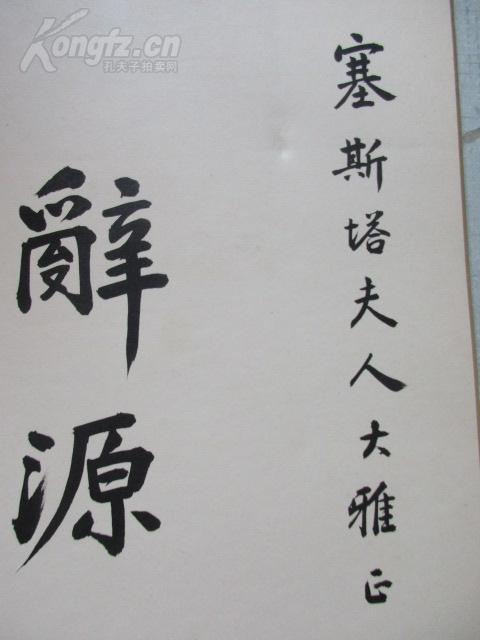 塞斯塔夫人大雅正
辭源
Kongfz.cn
孔夫子拍卖网